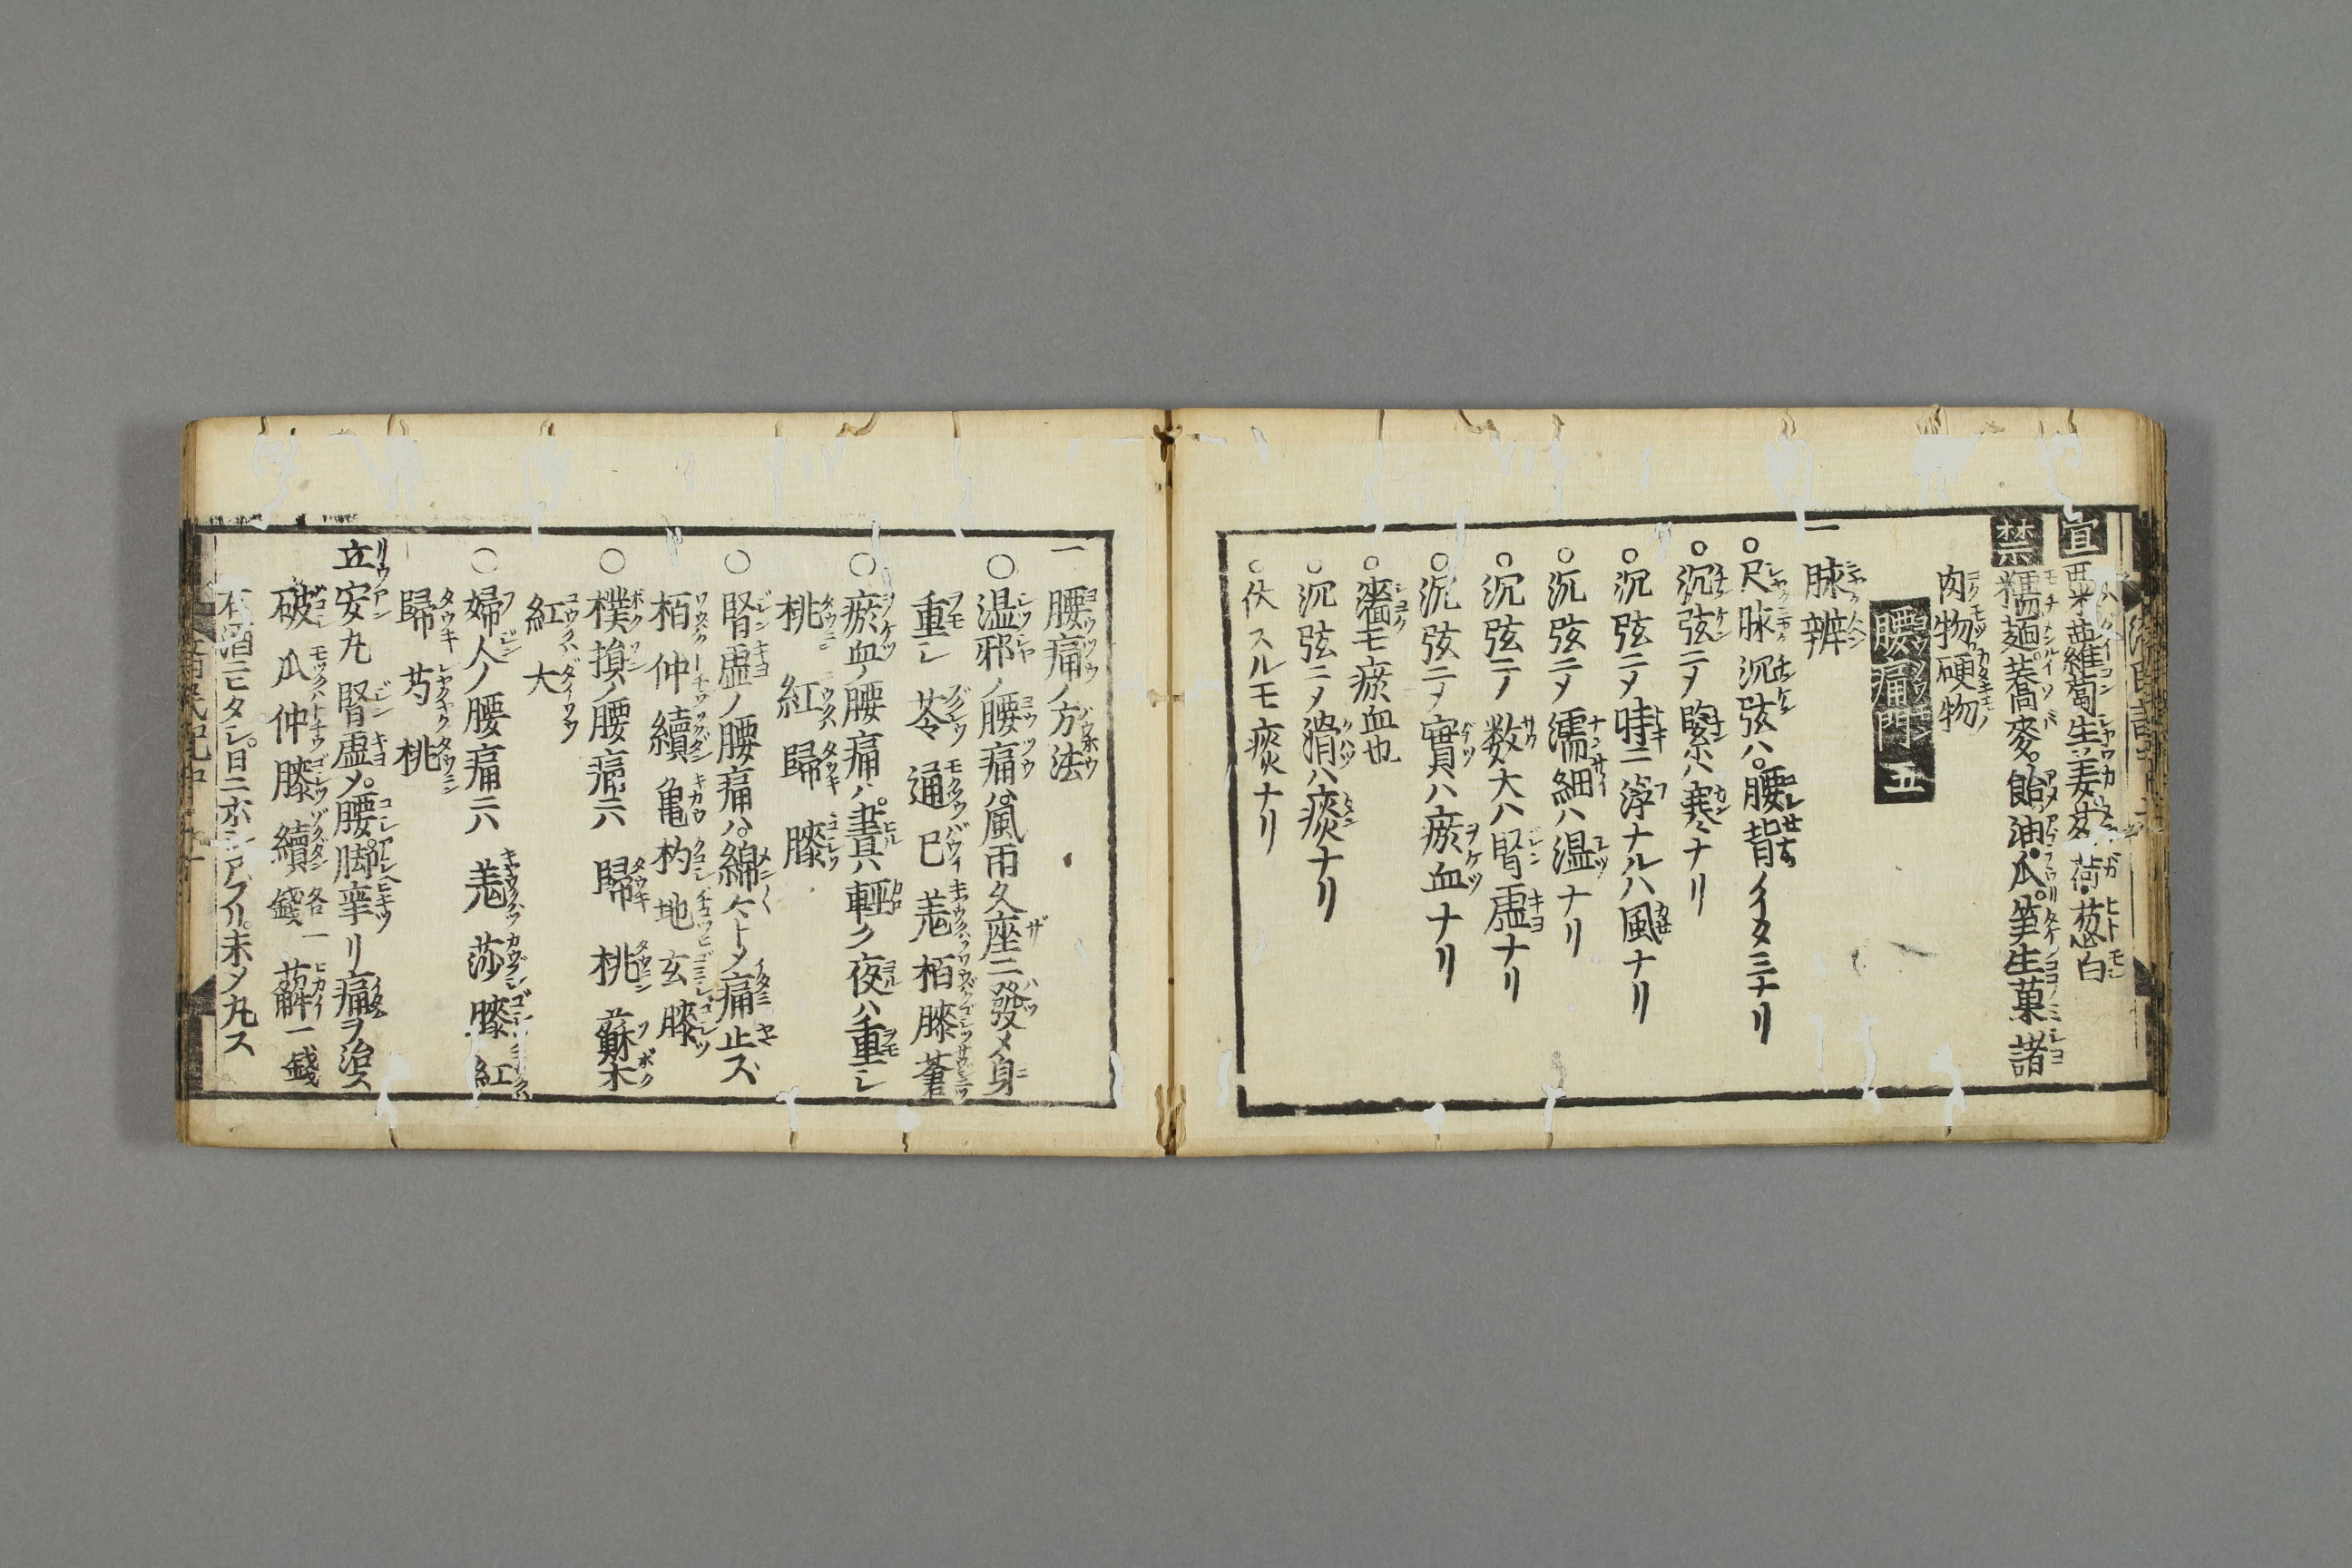 宜 粟蘿蔔生姜茗荷葱白
禁 糯麺蕎麥飴油瓜笋生菓諸
肉物硬物
腰痛門 五
一 脉辨
○尺脉沉弦ハ腰背ノイタミナリ
○沉弦ニメ緊ハ寒ナリ
○沉弦ニメ時ニ浮ナルハ風ナリ
○沉弦ニメ濡細ハ温ナリ
○沉弦ニメ数大ハ腎虚ナリ
○沉弦ニメ實ハ瘀血ナリ
○濇モ瘀血也
○沉弦ニメ滑ハ痰ナリ
○伏スルモ痰ナリ
一 腰痛ノ方法
○温邪ノ腰痛ハ風雨久座ニ發メ身
重シ 苓 通 巳 羗 栢 膝 蒼
○瘀血ノ腰痛ハ晝ハ輕ク夜ハ重シ
桃 紅 歸 膝
○腎虚ノ腰痛ハ綿々トメ痛止ズ
栢 仲 續 亀 杓 地 玄 膝
○樸損ノ腰痛ニハ 歸 桃 蘇木
紅 大
○婦人ノ腰痛ニハ 羗 莎 膝 紅
歸 芍 桃
立安丸 腎虚メ腰脚攣リ痛ヲ治ス
破 瓜 仲 膝 續各一錢 萆一錢
右酒ニヒタシ日ニホシアブリ末メ丸ス